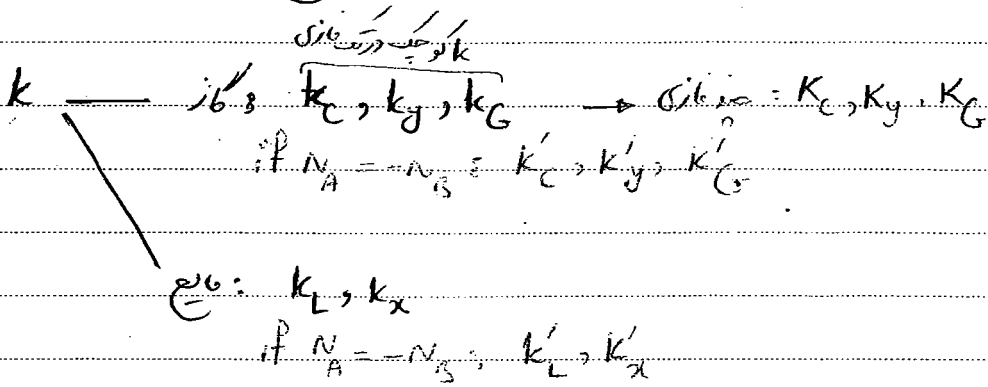 k کوچک در تک فازی
k — گاز : k_C , k_y , k_G → چند فازی : K_C , K_y , K_G
if N_A = -N_B : k'_C , k'_y , k'_G
مایع : k_L , k_x
if N_A = -N_B : k'_L , k'_x